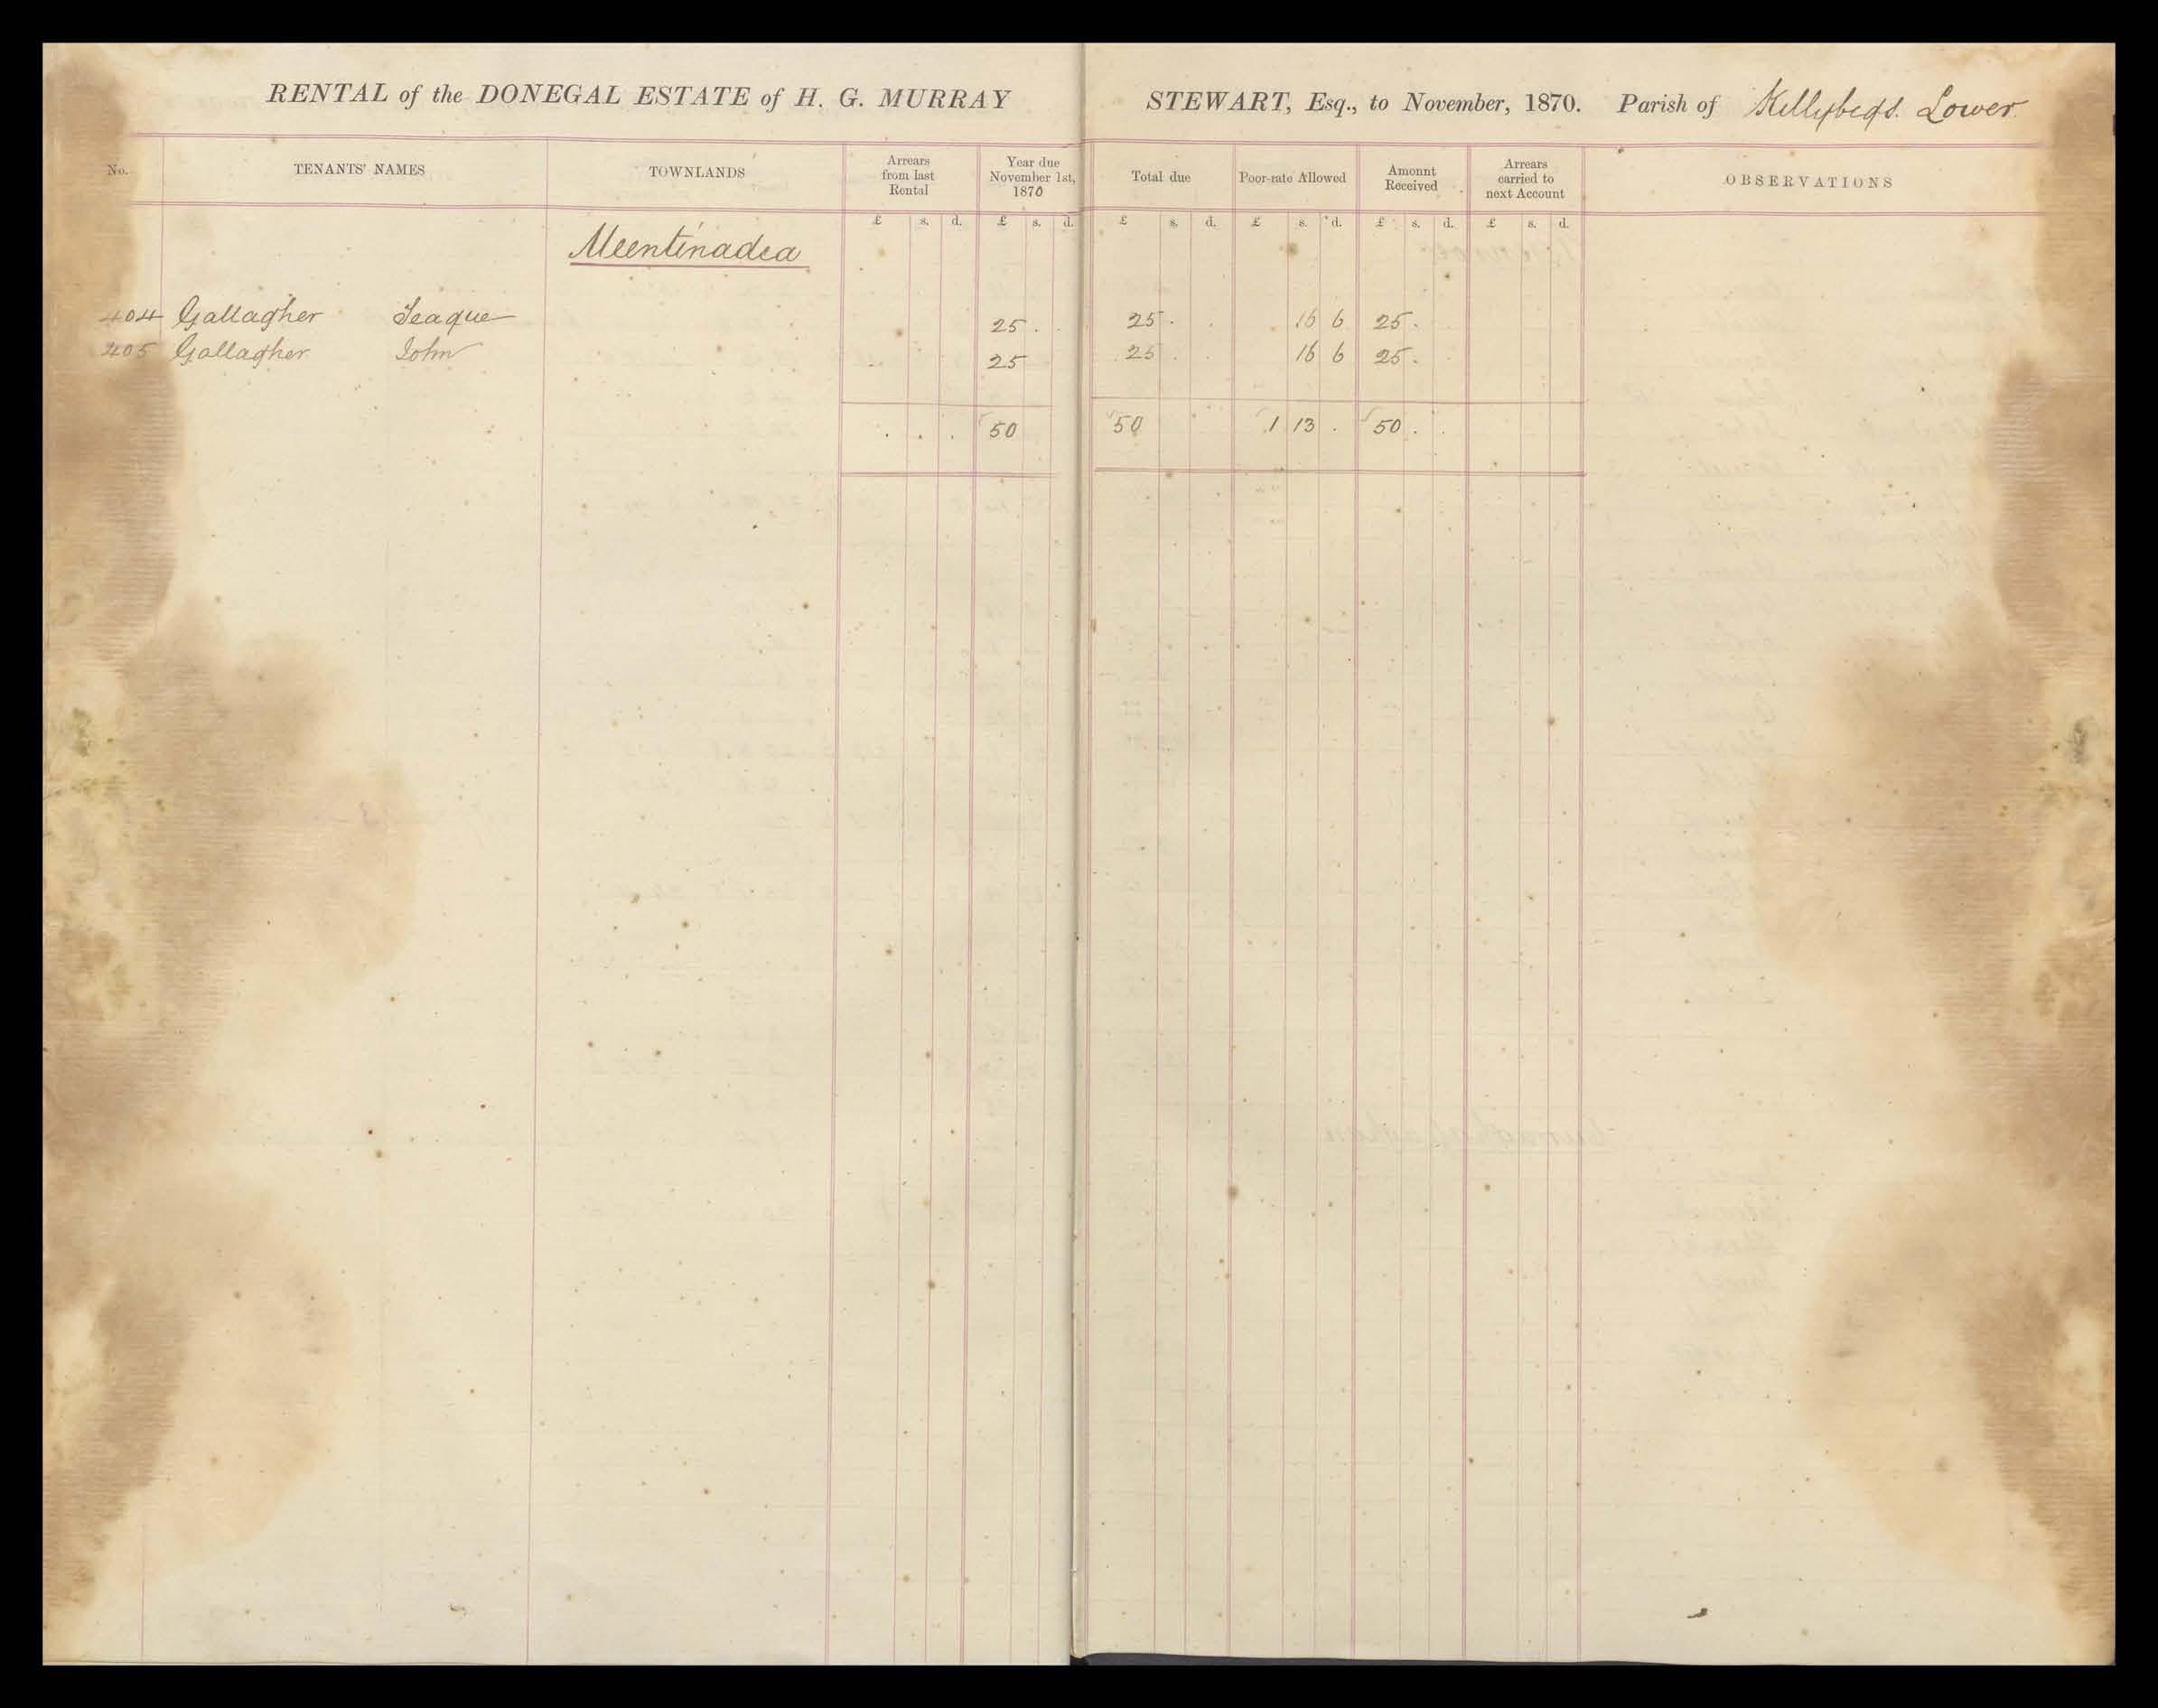 RENTAL of the DONEGAL ESTATE of H. G. MURRAY STEWART, Esq., to November, 1870. Parish of Killybegs. Lower
No. TENANTS' NAMES TOWNLANDS Arrears from last Rental Year due November 1st, 1870 Total due Poor-rate Allowed Amonnt Received Arrears carried to next Account OBSERVATIONS
£ s. d. £ s. d. £ s. d. £ s. d. £ s. d. £ s. d.
Meentinadea
404 Gallagher Teague 25 . . 25 . . 16 6 25 .
405 Gallagher John 25 25 . . 16 6 25 .
. . . 50 50 1 13 . 50 . .